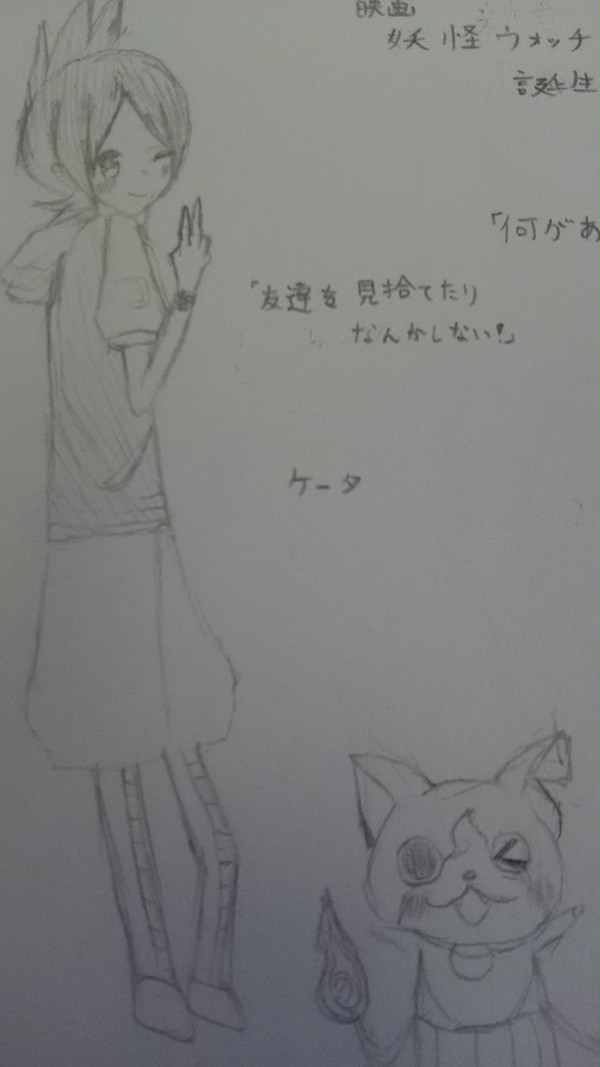 映画
妖怪ウォッチ
誕生
「何があ
「友達を見捨てたり
なんかしない!」
ケータ